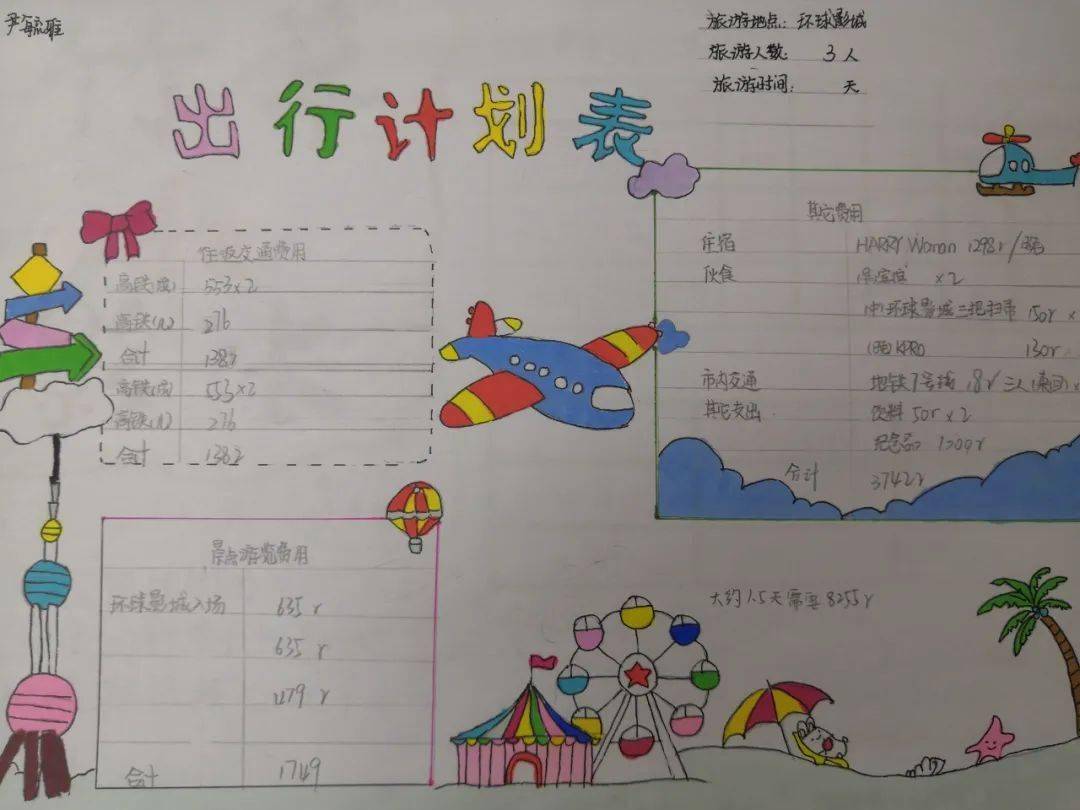 旅游地点：环球影城
旅游人数：3人
旅游时间：天
出行计划表
往返交通费用
高铁(成) 553×2
高铁(儿) 276
合计 1382
高铁(成) 553×2
高铁(儿) 276
合计 1382
其它费用
住宿 HARRY Woman 1298r/晚
伙食 ×2
(中)环球影城三把扫帚 150r×
(晚) 130r
市内交通 地铁7号线 18r 三人
其它支出 饮料50r×2
纪念品
合计 3742r
景点游览费用
环球影城入场 635r
635r
r
合计 1749
大约1.5天需要8255r